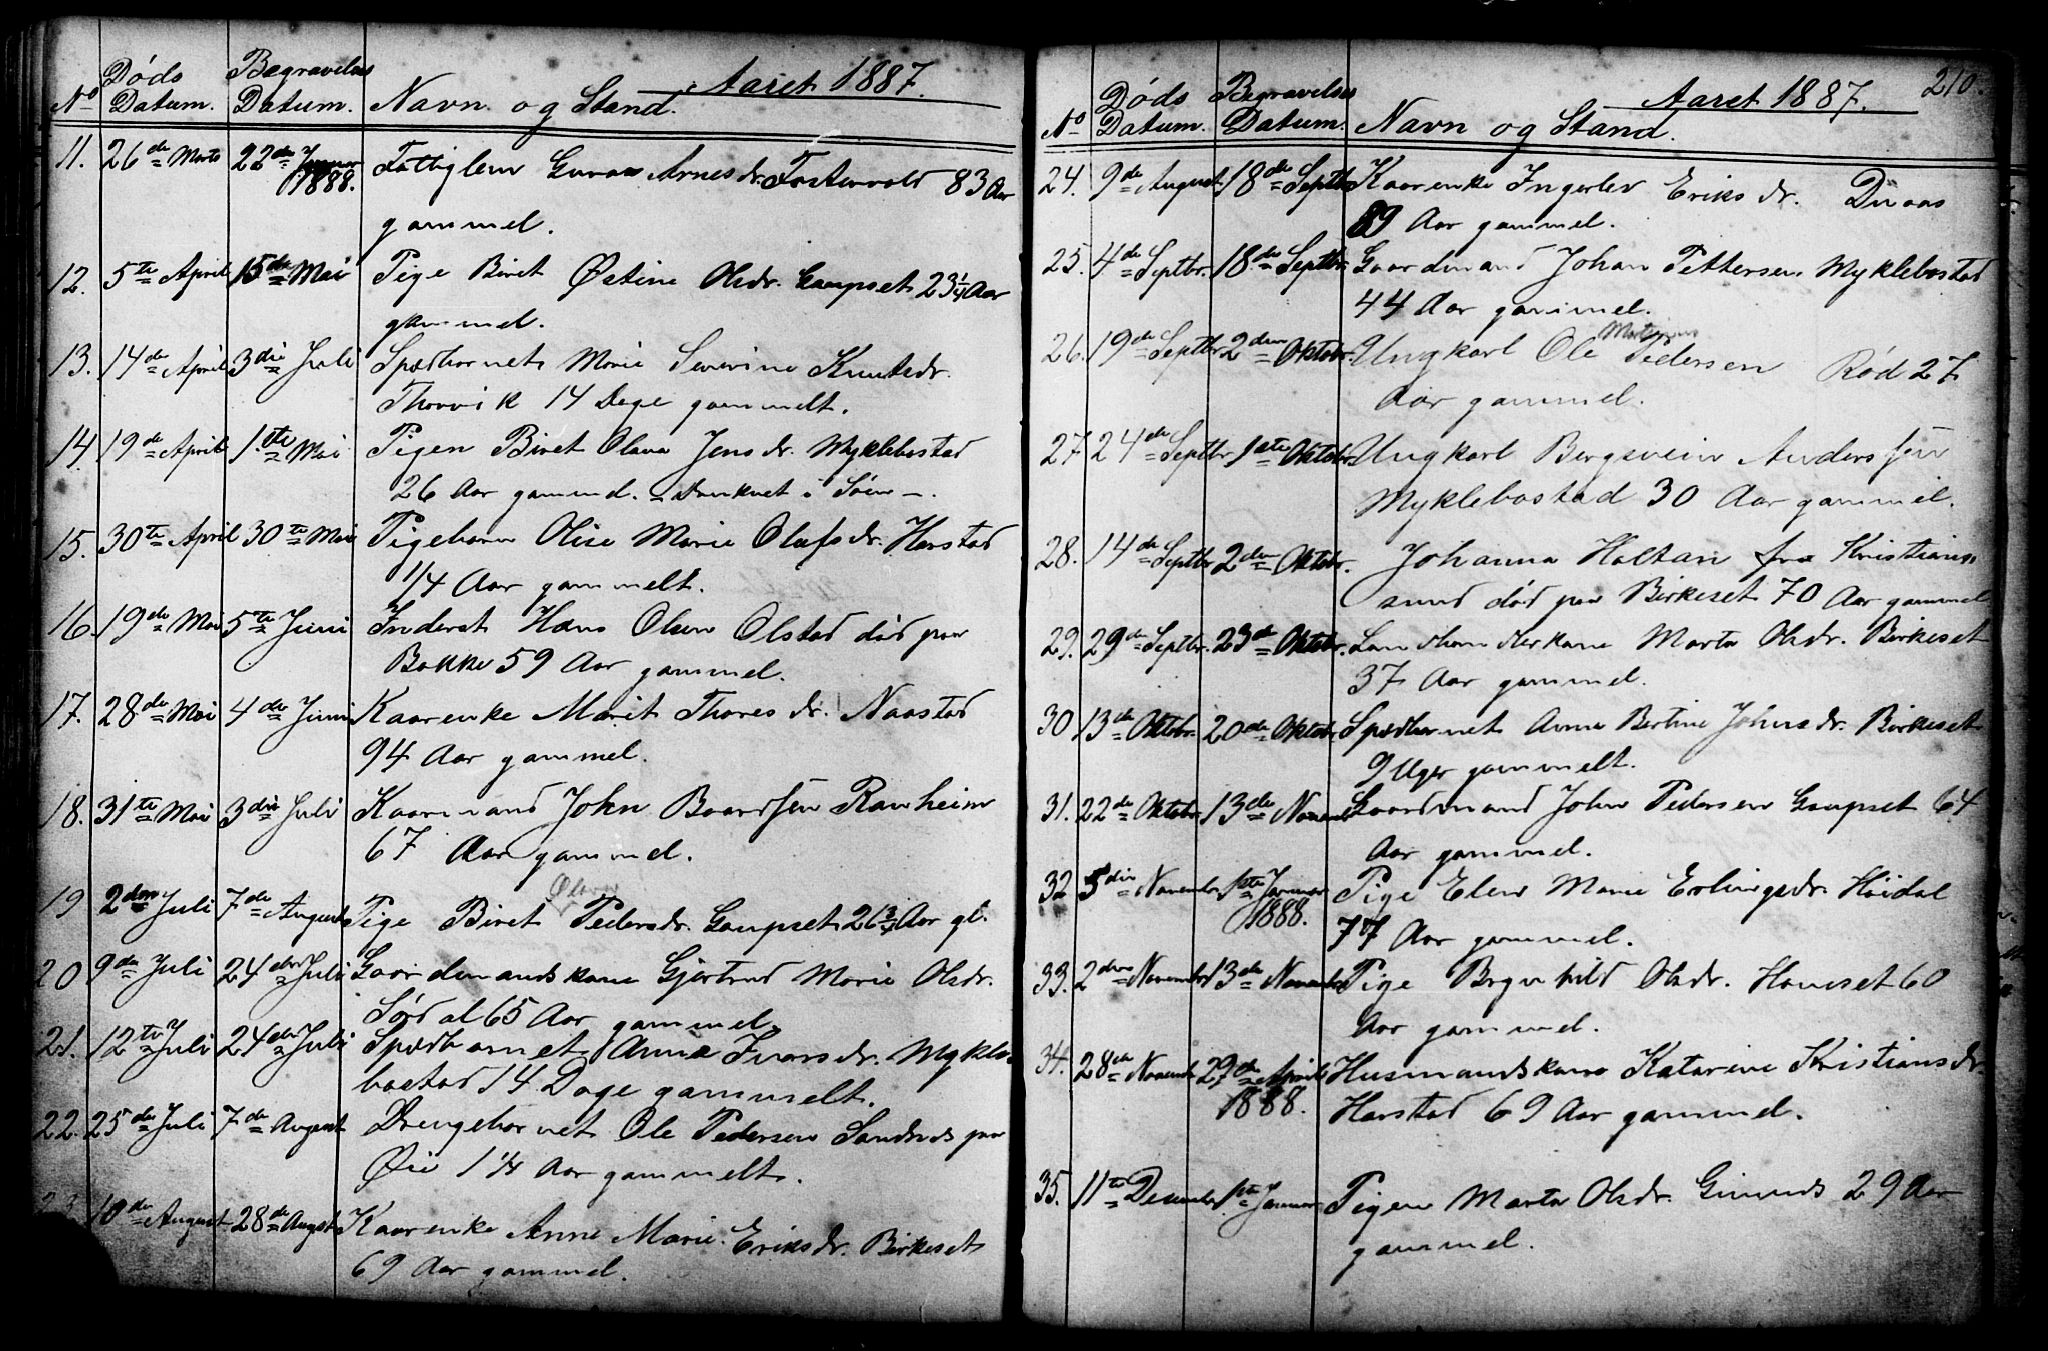 Aaret 1887.
No Døds Datum. Begravelses Datum. Navn og Stand.
11. 26de Marts 22de Januar 1888. Fattiglem Guroe Arnesdr. Fostervold 83 Aar
gammel.
12. 5te April 15de Mai Pige Biret Østine Olsdr. Gaupset 23 1/4 Aar
gammel.
13. 14de April 3die Juli Spædbarnet Marie Severine Knutsdr.
Thorvik 14 Dage gammelt.
14. 19de April 1ste Mai Pigen Biret Olava Jensdr. Myklebostad
26 Aar gammel. - Druknet i Søen -.
15. 30te April 30te Mai Pigebarn Olise Marie Olafsdr. Harstad
1/4 Aar gammelt.
16. 19de Mai 5te Juni Inderst Hans Olsen Olstad død paa
Bakke 59 Aar gammel.
17. 28de Mai 4de Juni Kaarenke Marit Tharesdr. Naastad
94 Aar gammel.
18. 31te Mai 3die Juli Kaarmand John Baardsen Ranheim
67 Aar gammel.
Olava
19 2den Juli 7de August Pige Biret Pedersdr. Gaupset 26 3/4 Aar gl.
20 9de Juli 24de Juli Gaardmandskone Gjertrud Marie Olsdr.
Sødal 65 Aar gammel.
21. 12te Juli 24de Juli Spædbarnet Anne Ivarsdr. Mykle-
bostad 14 Dage gammelt.
22. 25de Juli 7de August Drengebarnet Ole Pedersen Sandnes paa
Øie 1 1/4 Aar gammelt.
23. 10de August 28de Augst Kaarenke Anne Marie Eriksdr. Birkeset
69 Aar gammel.
210.
Aaret 1887.
No Døds Datum. Begravelses Datum. Navn og Stand.
24. 9de August 18de Septbr. Kaarenke Ingerlev Eriksdr. Duaas
89 Aar gammel.
25. 4de Septbr. 18de Septbr. Gaardmand Johan Pettersen Myklebostad
44 Aar gammel.
26. 19de Septbr. 2den Oktobr. Ungkarl Ole Pedersen Rød 27
Aar gammel.
27 24de Septbr. 1ste Oktobr. Ungkarl Bergsvein Anderssen
Myklebostad 30 Aar gammel.
28. 14de Septbr. 2den Oktobr. Johanna Holtan fra Kristian-
sund død paa Birkeset 70 Aar gammel
29. 29de Septbr. 23de Oktobr. Landhandlerkone Marta Olsdr. Birkeset
37 Aar gammel.
30 13de Oktobr. 20de Oktobr. Spædbarnet Anne Bertine Johnsdr. Birkeset
9 Uger gammelt.
31. 22de Oktobr. 13de Novembr Gaardmand John Pedersen Gaupset 64
Aar gammel.
32 5die Novembr 1ste Januar 1888. Pige Elen Marie Erlingsdr. Høidal
77 Aar gammel.
33. 2den Novembr 13de Novembr Pige Brynhild Olsdr. Haveset 60
Aar gammel.
34. 28de Novembr 29de April 1888. Husmandskone Katarine Kristiansdr.
Harstad 69 Aar gammel.
35. 11te Desembr 1ste Januar Pigen Marta Olsdr. Gimnes 29 Aar
gammel.